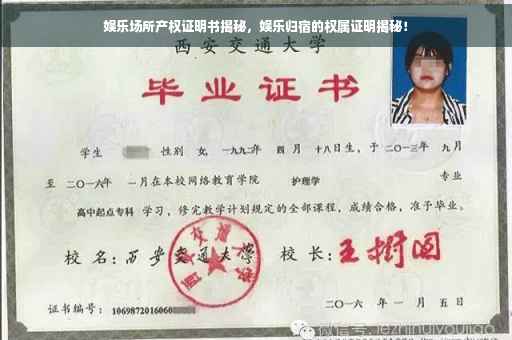 娱乐场所产权证明书揭秘，娱乐归宿的权属证明揭秘！
西安交通大学
毕业证书
学生 性别 女, 一九九二年 四 月 十八日生, 于 二〇一三年 九月
至 二〇一六年 一月在本校网络教育学院 护理学 专业
高中起点专科 学习, 修完教学计划规定的全部课程, 成绩合格, 准予毕业。
校 名: 西安交通大学 校 长: 王树国
西安交通大学
证书编号: 1069872016060
二〇一六 年 一 月 五 日
微信号: jiezhihuiyoujiao